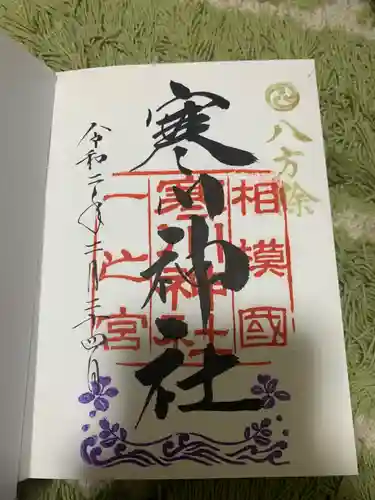 八方除
寒川神社
相模國
寒川神社
一之宮
令和二年二月二十四日